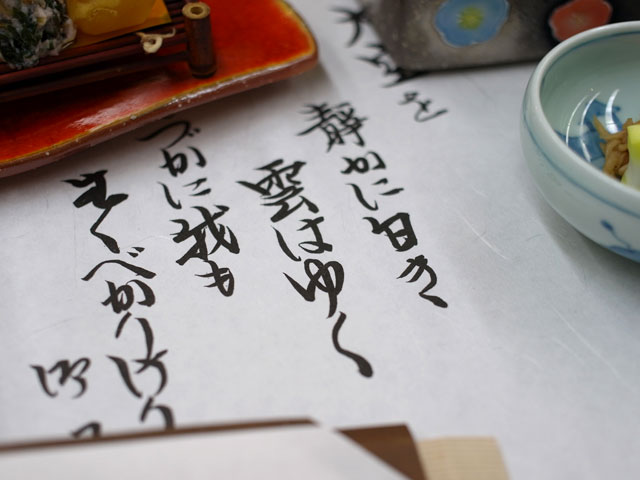 大空を
静かに白き
雲はゆく
づかに我も
生くべかりけり
御